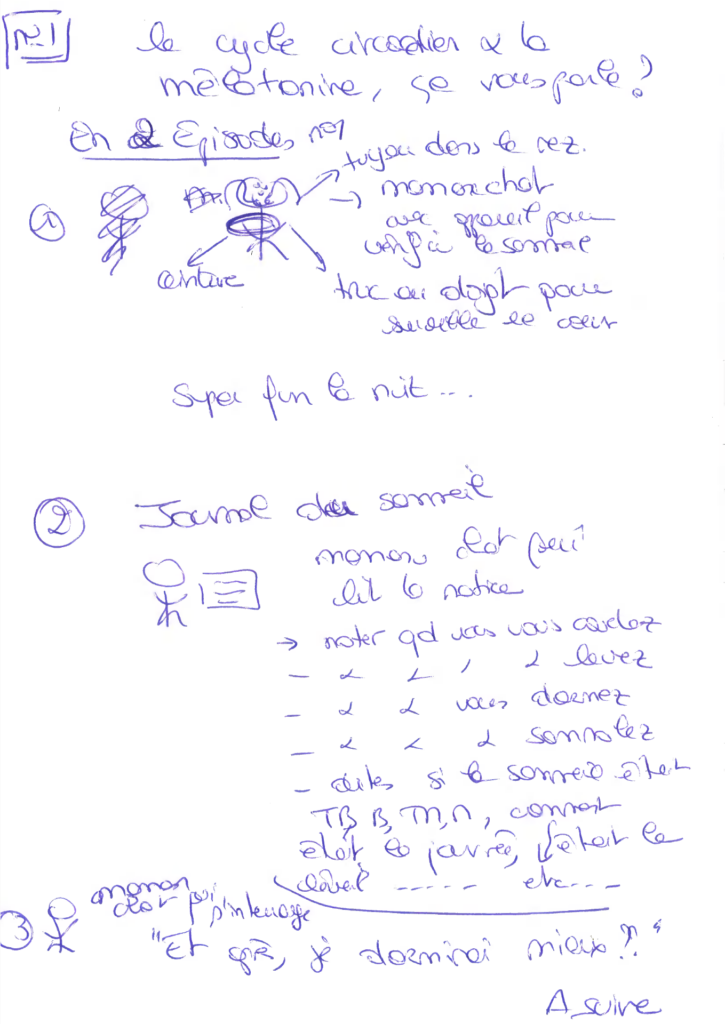 n°1
le cycle circadien & la
mélatonine, ça vous parle ?
En 2 Episodes n°1
tuyau dans le nez.
①
maman chat
avec appareil pour
le sommeil
ceinture
truc au doigt pour
surveille le cœur
Super fun la nuit...
② Journal du sommeil
maman chat qui
lit la notice
→ noter qd vous vous couchez
levez
vous dormez
somnolez
- dites si le sommeil était
TB, B, M, comment
était la journée, c'était le
réveil ..... etc...
③ maman
chat qui s'interroge
"Et après, je dormirai mieux ?"
A suivre